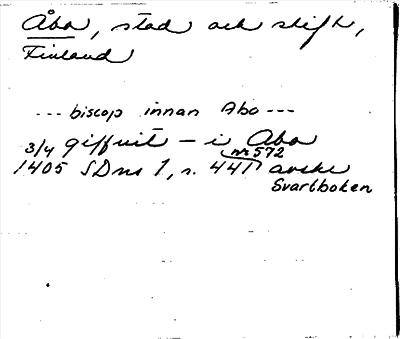 Åbo, stad och stift,
Finland
--- biscop innan Abo ---
giffuit – i Abo
3/4 nr 572
1405 SDns 1, s. 441 avskr
Svartboken